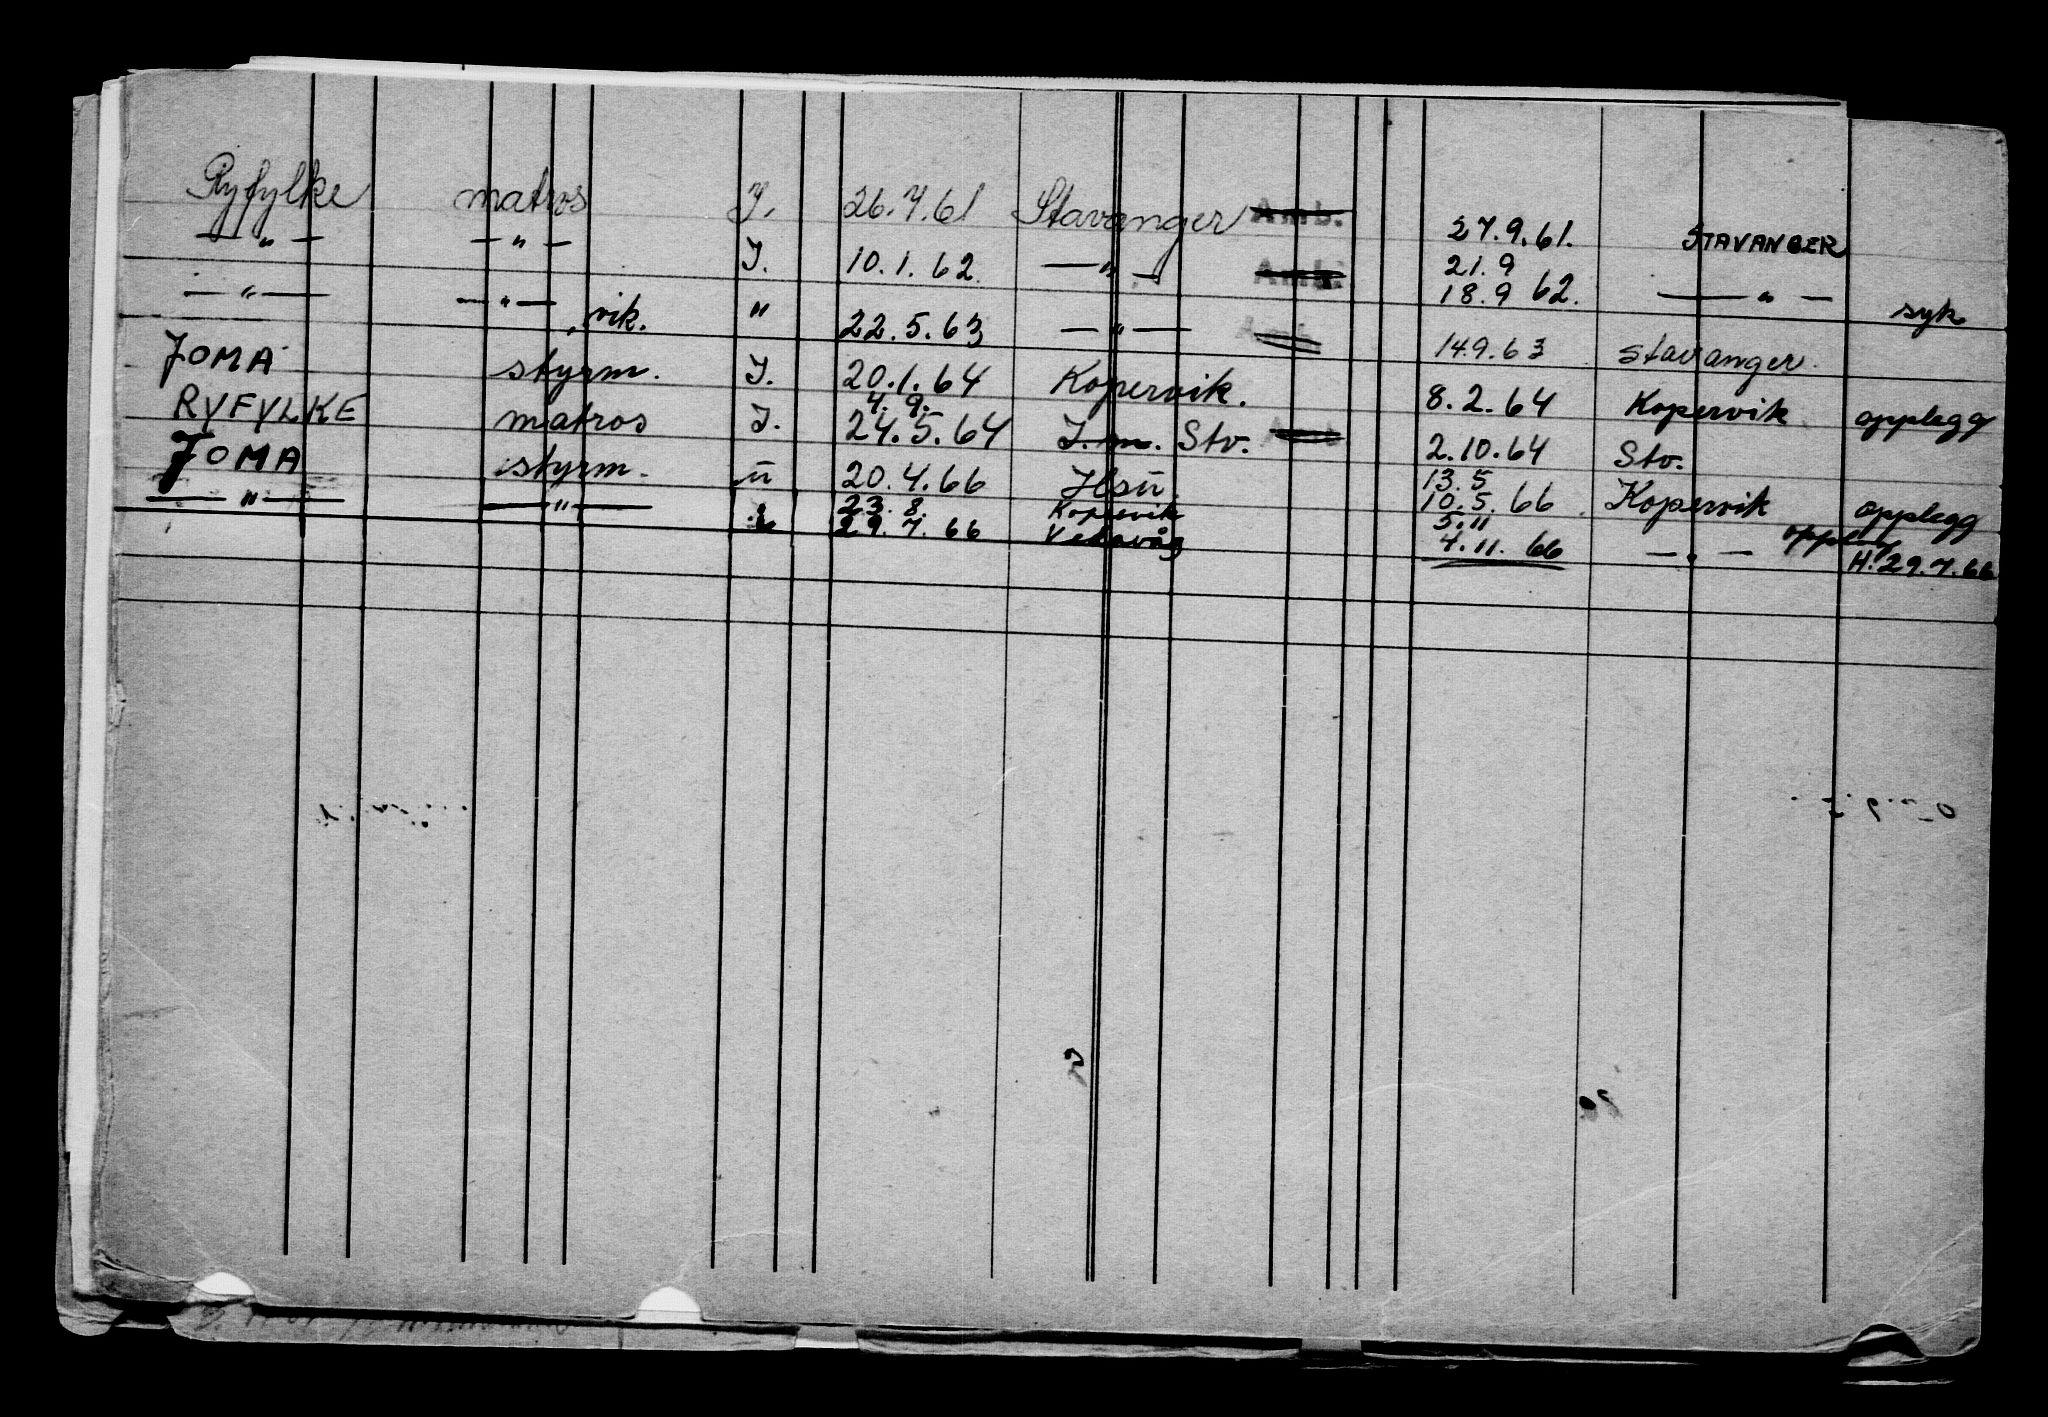 Ryfylke matros I. 26.7.61 Stavanger Amb. 27.9.61. STAVANGER
—"— —"— I. 10.1.62 —"— Amb. 21.9 18.9 62. —"— syk
—"— —"— vik. " 22.5.63 —"— Amb. 14.9.63 Stavanger.
JOMA styrm. I. 20.1.64 Kopervik. 8.2.64 Kopervik opplegg
RYFYLKE matros I. 4.9. 24.5.64 I.m. Stv. 2.10.64 Stv.
JOMA styrm. 20.4.66 13.5 10.5.66 Kopervik opplegg
—"— —"— 23.8. 29.7.66 Kopervik Vedavåg 5.11 4.11.66 —"— opplegg H. 29.7.66